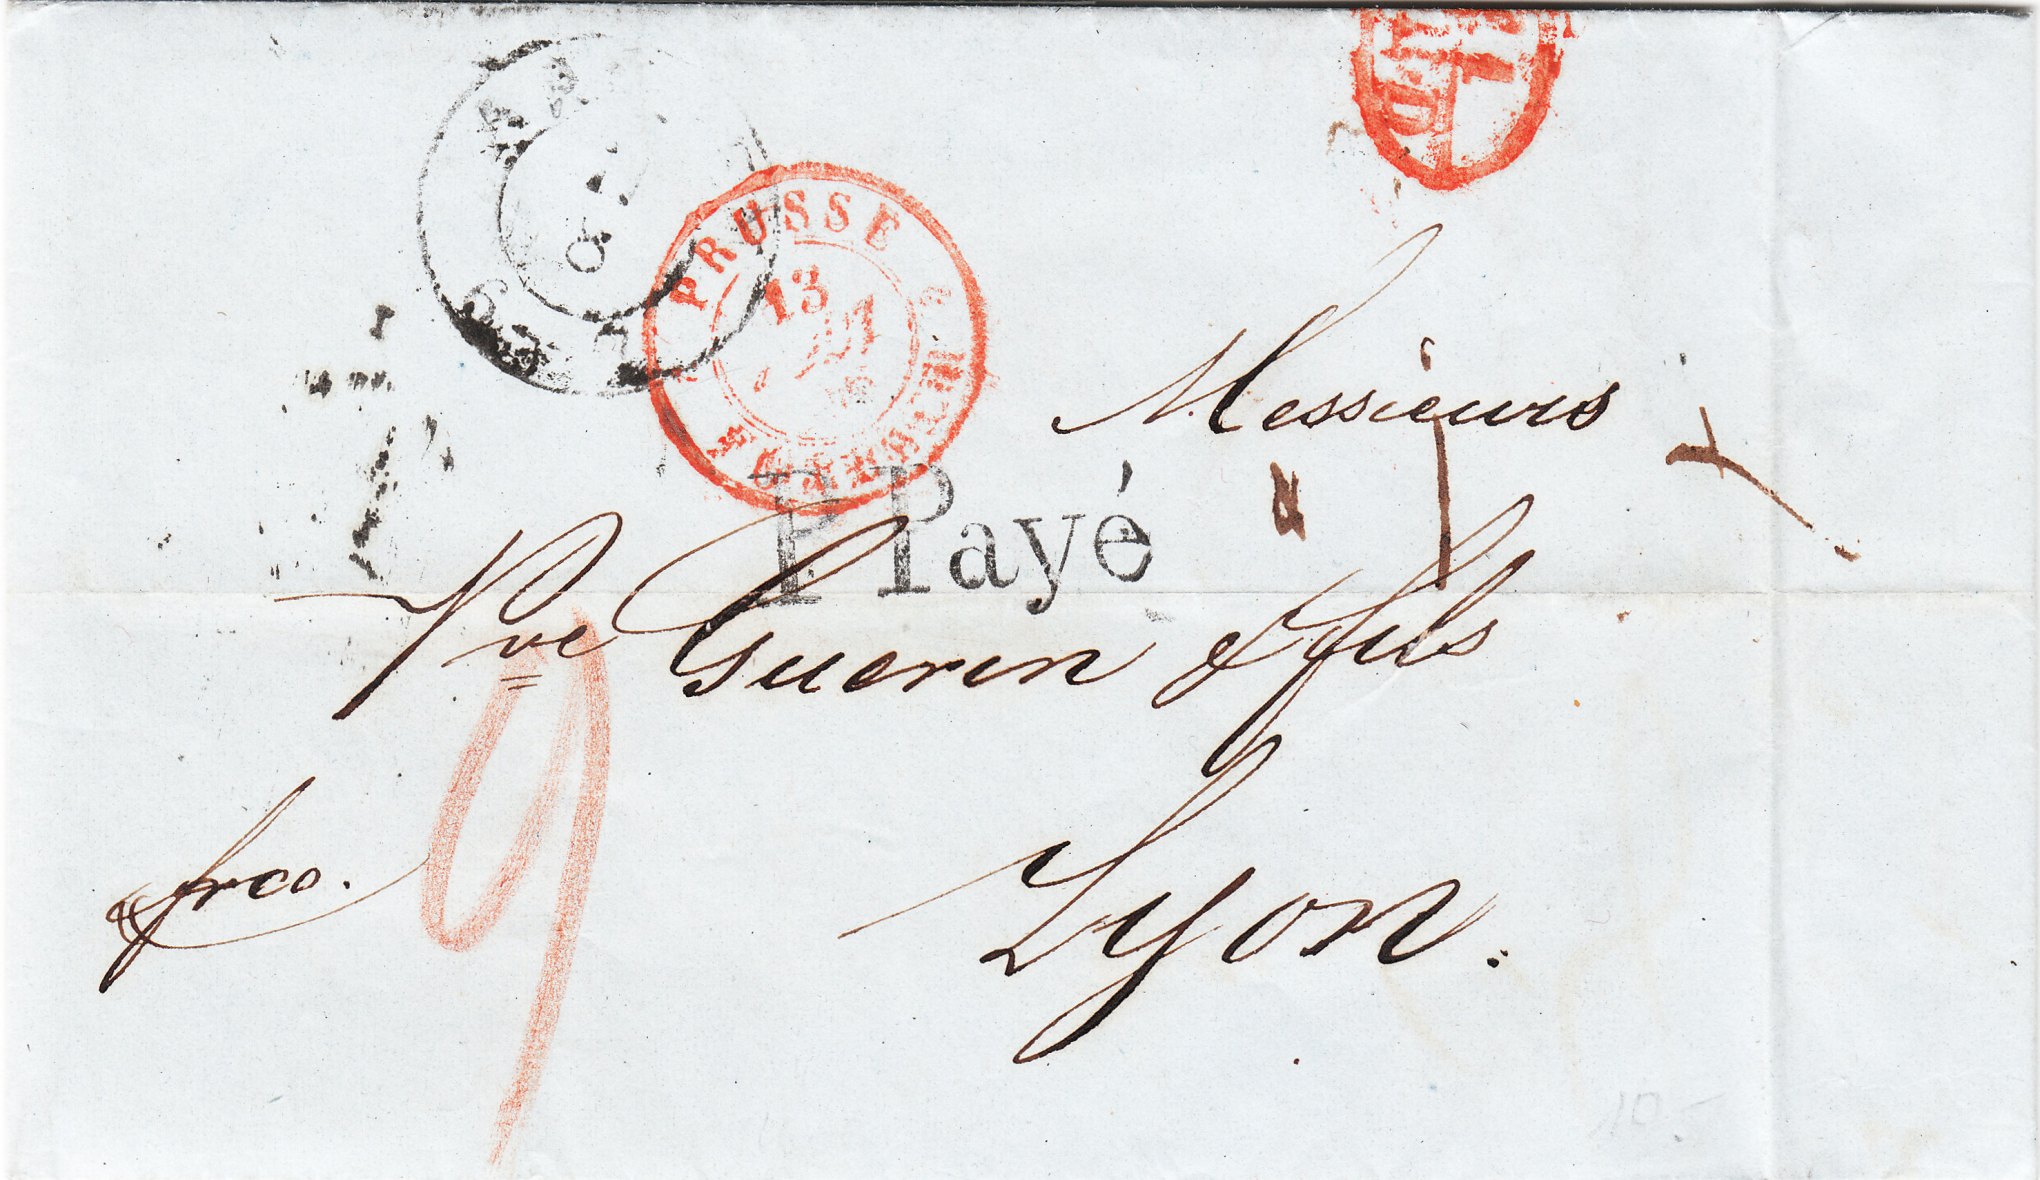 PRUSSE
13
Messieurs
P Payé
Vve Guerin & fils
frco.
Lyon.
10.-